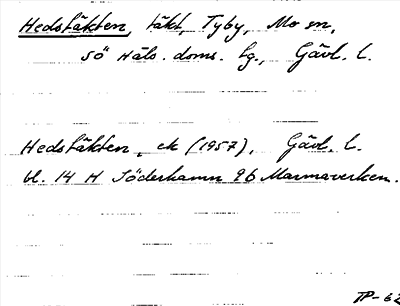 Hedstäkten, täkt, Tyby, Mo sn,
Sö Häls. doms. tg., Gävl. l.
Hedstäkten, ek (1957), Gävl. l.
bl. 14 H Söderhamn 9b Marmaverken.
TP-62